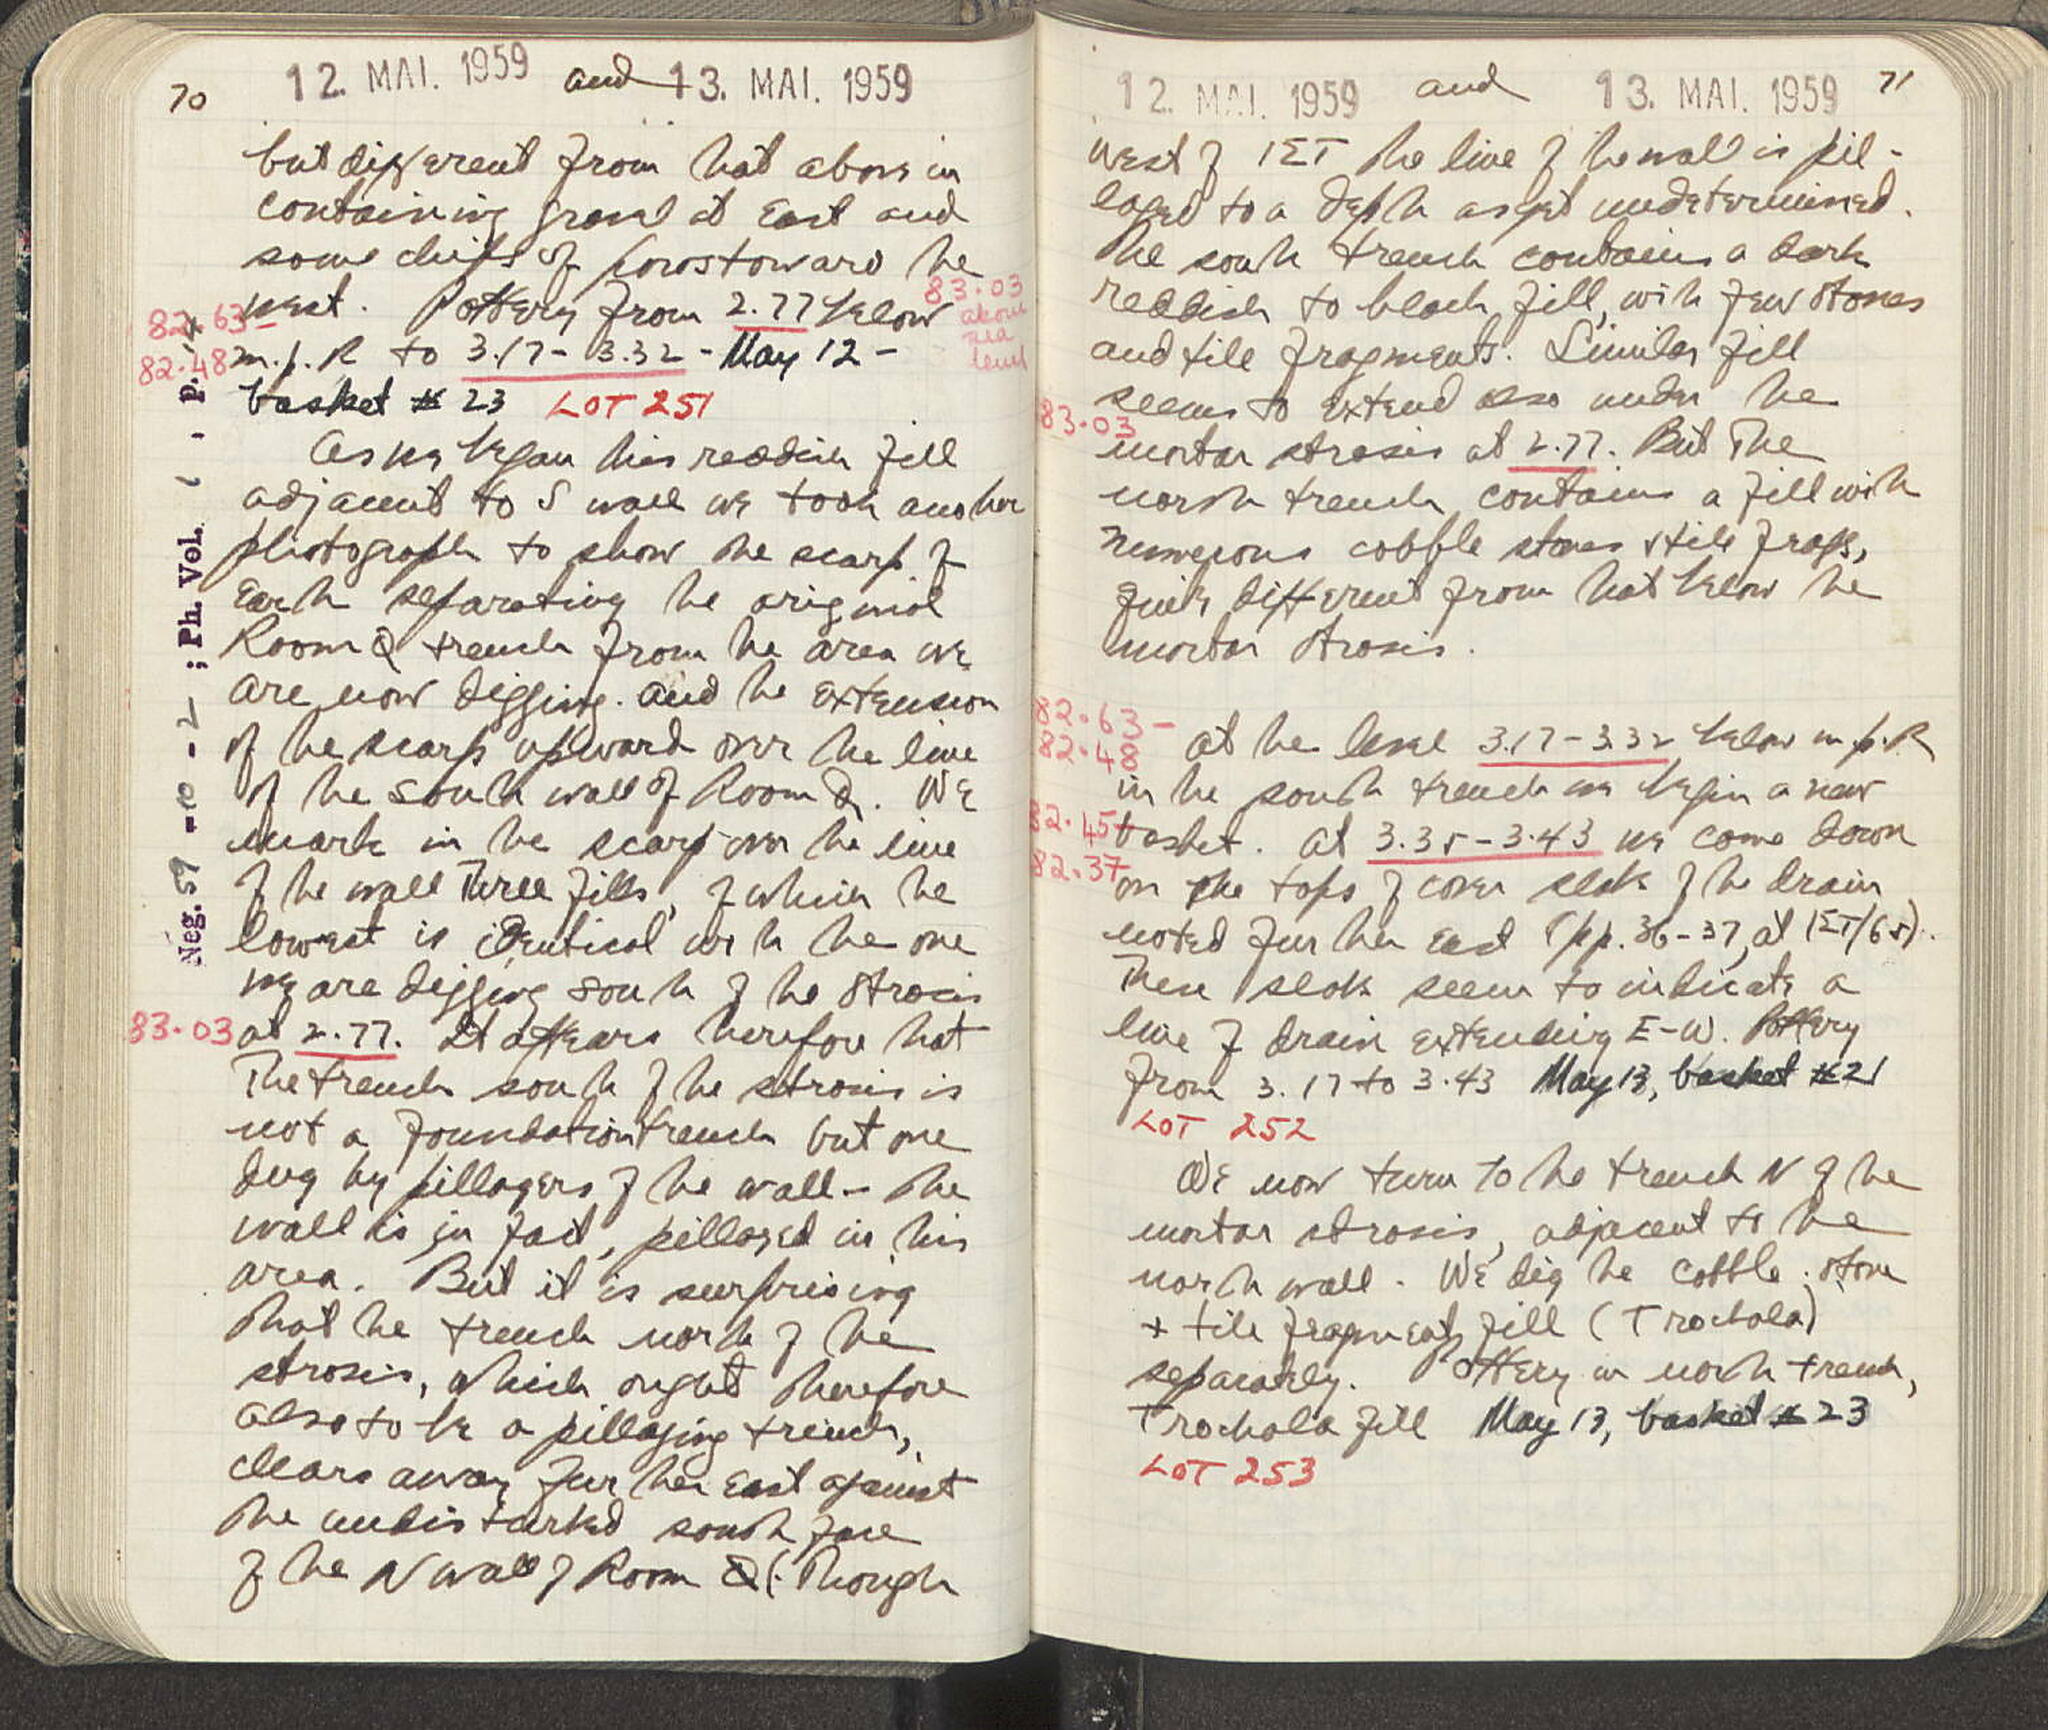 70
12. MAI. 1959 and 13. MAI. 1959
but different from that above in
containing gravel at East and
some chips of poros toward the
83.03
above
sea
level
82.63-
82.48
west. Pottery from 2.77 below
m.p. R to 3.17-3.32 - May 12 -
basket # 23 LOT 251
As we began this reddish fill
adjacent to S wall we took another
photograph to show the scarp of
Earth separating the original
Room Q trench from the area we
are now digging. and the extension
of the scarp upward over the line
of the south wall of Room Q. We
mark in the scarp over the line
of the wall Three fills, of which the
lowest is identical with the one
we are digging south of the strosis
83.03 at 2.77. It appears therefore that
The trench south of the strosis is
not a foundation trench but one
dug by pillagers of the wall - The
wall is in fact, pillaged in this
area. But it is surprising
that the trench north of the
strosis, which ought therefore
also to be a pillaging trench,
clears away further East against
the undisturbed south face
of the N wall of Room Q (: Though
Neg. 59 - 10 - 2 ; Ph. Vol. , p. 14
12. MAI. 1959 and 13. MAI. 1959 71
west of IΣT the line of the wall is pil-
laged to a depth as yet undetermined.
The south trench contains a dark
reddish to black fill, with few stones
and tile fragments. Similar fill
seems to extend also under the
83.03
mortar strosis at 2.77. But The
north trench contains a fill with
numerous cobble stones + tile frags,
quite different from that below the
mortar strosis.
82.63-
82.48
At the level 3.17-3.32 below m.p. R
in the south trench we begin a new
82.45-
82.37
basket. At 3.35-3.43 we come down
on the tops of cover slabs of the drain
noted further East (pp. 36-37, at IΣT/65).
These slabs seem to indicate a
line of drain extending E-W. Pottery
from 3.17 to 3.43 May 13, basket #21
LOT 252
We now turn to the trench N of the
mortar strosis, adjacent to the
north wall. We dig the cobble stone
+ tile fragments fill (Trochala)
separately. Pottery in north trench,
Trochala fill May 13, basket # 23
LOT 253